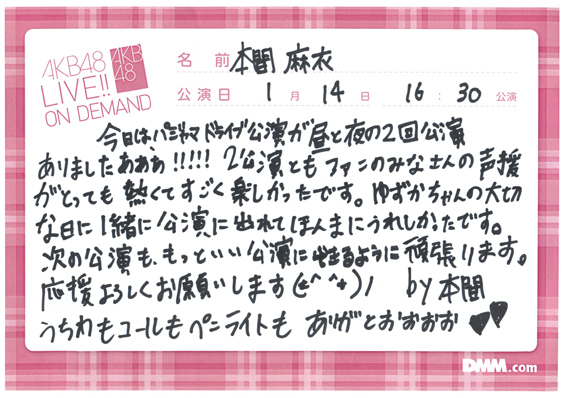 AKB48
LIVE!!
ON DEMAND
AKB
48
名前 本間 麻衣
公演日 1月 14日 16:30公演
今日はパジャマドライブ公演が昼と夜の2回公演
ありましたあぁぁ!!!!! 2公演ともファンのみなさんの声援
がとっても熱くてすごく楽しかったです。ゆずかちゃんの大切
な日に1緒に公演に出れてほんまにうれしかったです。
次の公演も、もっといい公演に出来るように頑張ります。
応援よろしくお願いします(*^^*)ノ by本間
うちわもコールもペンライトも ありがとおおおお ♥♥
DMM.com